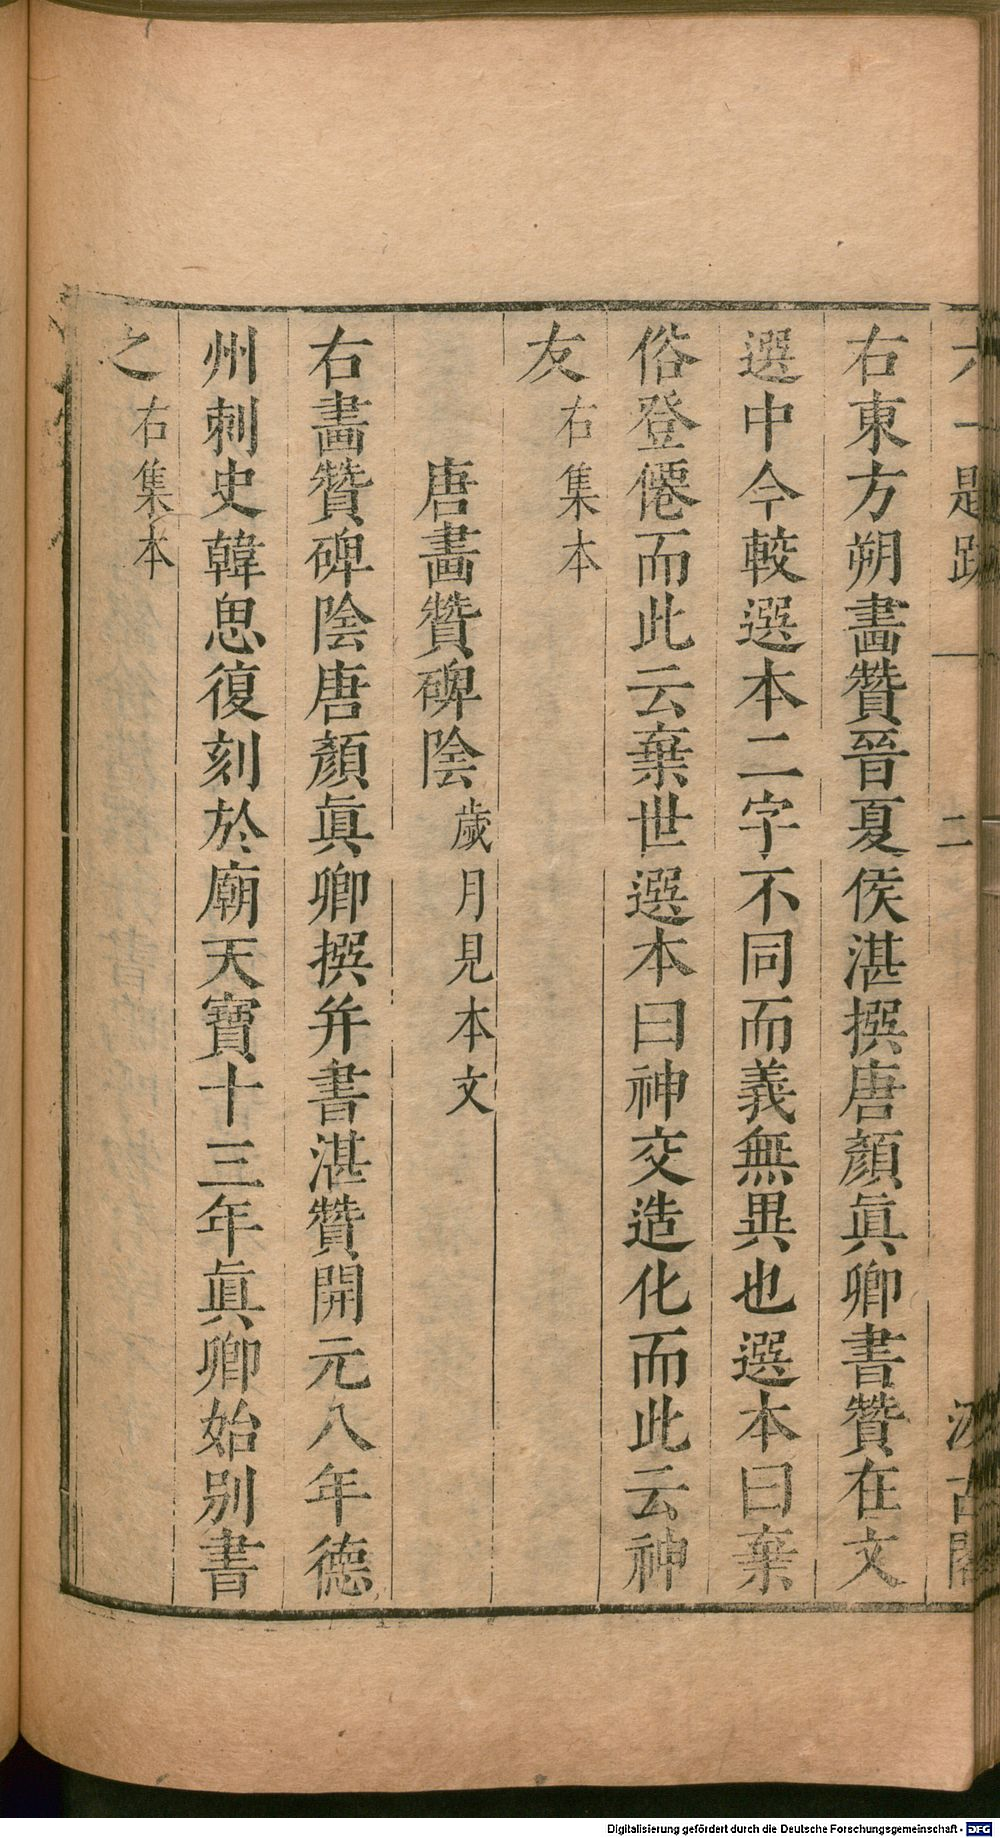 右東方朔畫贊晉夏侯湛撰唐顏眞卿書贊在文
選中今較選本二字不同而義無異也選本曰棄
俗登僊而此云棄世選本曰神交造化而此云神
友右集本
唐畫贊碑陰歲月見本文
右畫贊碑陰唐顏眞卿撰并書湛贊開元八年德
州刺史韓思復刻於廟天寶十三年眞卿始別書
之右集本
二
古閣
Digitalisierung gefördert durch die Deutsche Forschungsgemeinschaft - DFG